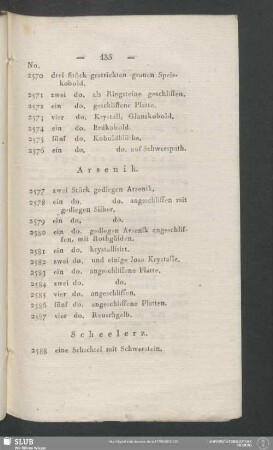 — 135 —
No.
2570 drei Stück gestrickten grauen Speis-
kobold.
2571 zwei do. als Ringsteine geschliffen.
2572 ein do. geschliffene Platte.
2573 vier do. Krystall. Glanzkobold.
2574 ein do. Erdkobold.
2575 fünf do. Koboldblüthe.
2576 ein do. do. auf Schwerspath.
Arsenik.
2577 zwei Stück gediegen Arsenik.
2578 ein do. do. angeschliffen mit
gediegen Silber.
2579 ein do. do.
2580 ein do. gediegen Arsenik angeschlif-
fen, mit Rothgülden.
2581 ein do. krystallisirt.
2582 zwei do. und einige lose Krystalle.
2583 ein do. angeschliffene Platte.
2584 zwei do. do.
2585 vier do. angeschliffen.
2586 fünf do. angeschliffene Platten.
2587 vier do. Rauschgelb.
Scheelerz.
2588 eine Schachtel mit Schwerstein.
SLUB
Wir führen Wissen.